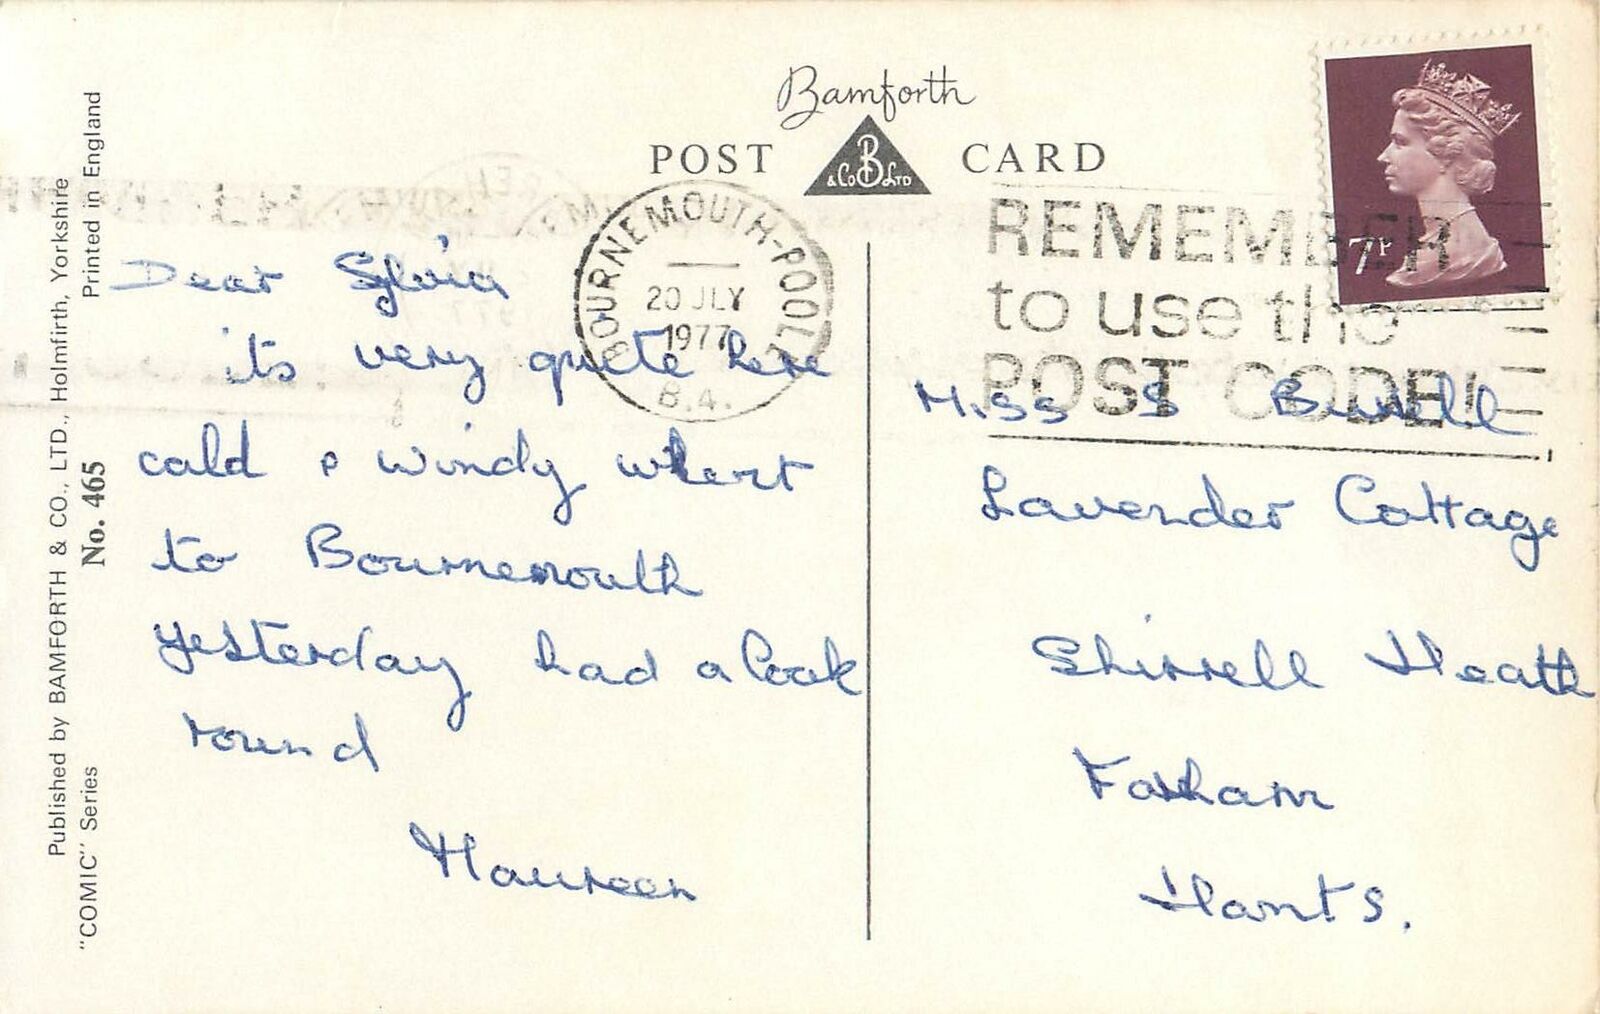 Bamforth
POST CARD
& Co B LTD
Published by BAMFORTH & CO., LTD., Holmfirth, Yorkshire
"COMIC" Series No. 465 Printed in England
BOURNEMOUTH-POOLE
20 JLY
1977
B.4.
REMEMBER
to use the
POST CODE!
7P
Dear Sylvia
its very quite here
cald & windy whent
to Bournemouth
yesterday had a look
round
Maureen
Miss S
Lavender Cottage
Shirrell Heath
Farham
Hants.